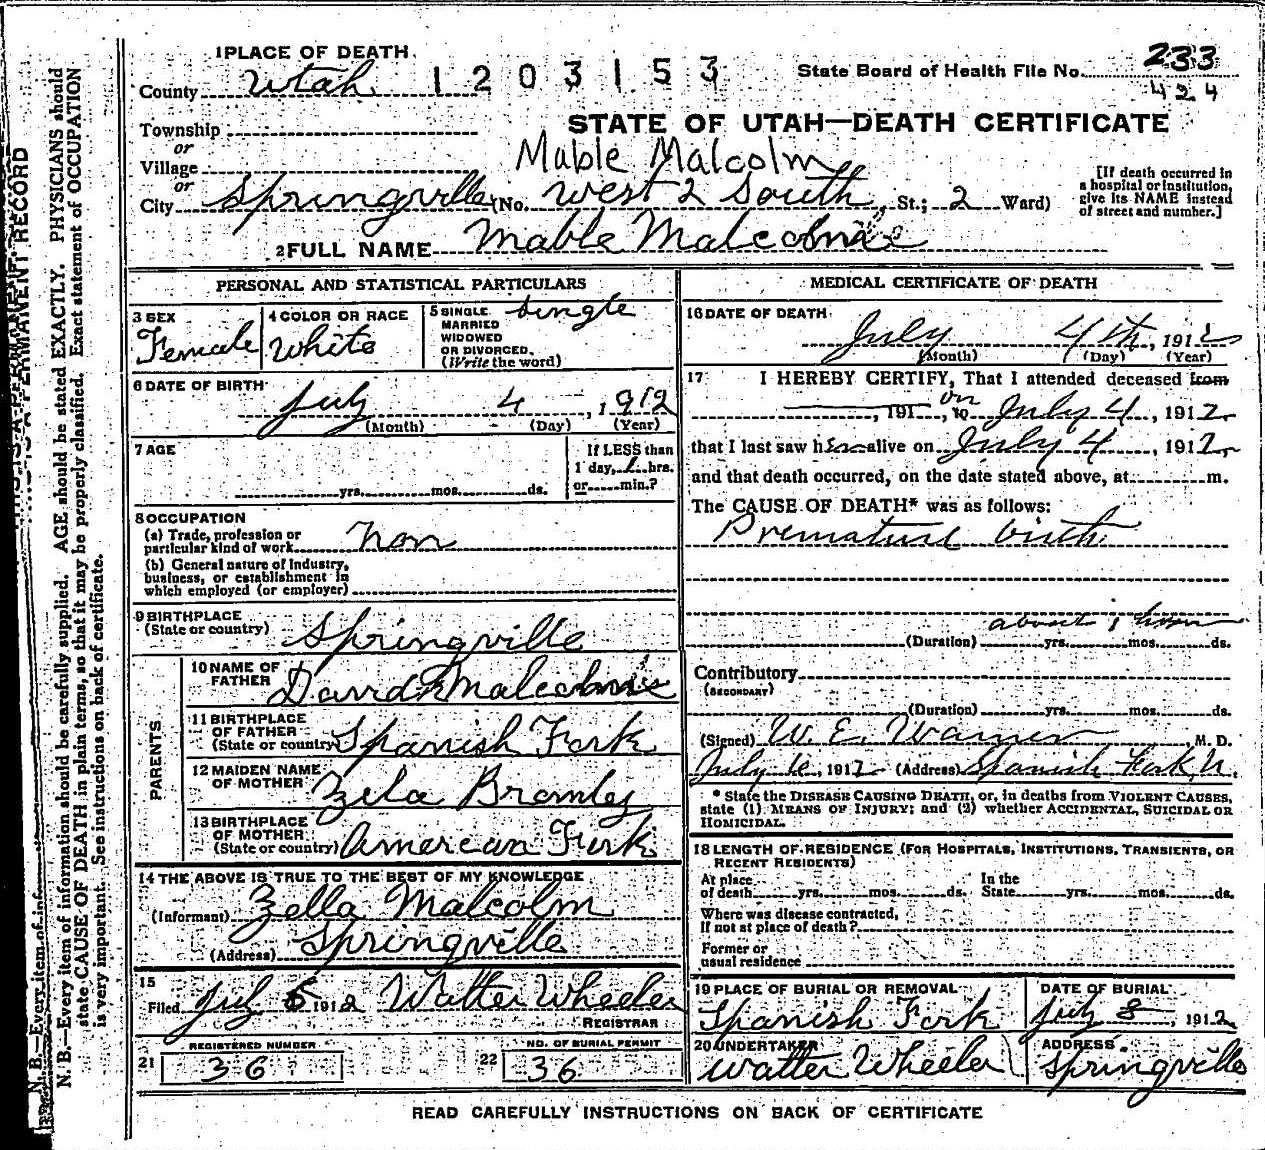 1 PLACE OF DEATH
County Utah 1203153
State Board of Health File No. 233
424
Township
or
Village
or
City Springville (No. West 2 South St.; 2 Ward)
STATE OF UTAH—DEATH CERTIFICATE
Mable Malcolm
[If death occurred in
a hospital or institution,
give its NAME instead
of street and number.]
2 FULL NAME Mable Malcolm
PERSONAL AND STATISTICAL PARTICULARS
3 SEX
Female
4 COLOR OR RACE
White
5 SINGLE Single
MARRIED
WIDOWED
OR DIVORCED.
(Write the word)
6 DATE OF BIRTH
July 4, 1912
(Month) (Day) (Year)
7 AGE
yrs. mos. ds.
If LESS than
1 day, 1 hrs.
or min.?
8 OCCUPATION
(a) Trade, profession or
particular kind of work non
(b) General nature of Industry,
business, or establishment in
which employed (or employer)
9 BIRTHPLACE
(State or country) Springville
PARENTS
10 NAME OF
FATHER David Malcolm
11 BIRTHPLACE
OF FATHER
(State or country) Spanish Fork
12 MAIDEN NAME
OF MOTHER Zela Bromley
13 BIRTHPLACE
OF MOTHER
(State or country) American Fork
14 THE ABOVE IS TRUE TO THE BEST OF MY KNOWLEDGE
(Informant) Zella Malcolm
(Address) Springville
15
Filed July 6 1912 Walter Wheeler
REGISTRAR
21 REGISTERED NUMBER
36
22 NO. OF BURIAL PERMIT
36
MEDICAL CERTIFICATE OF DEATH
16 DATE OF DEATH
July 4th, 1912
(Month) (Day) (Year)
17 I HEREBY CERTIFY, That I attended deceased from
, 191 , to on July 4, 1912
that I last saw her alive on July 4, 1912
and that death occurred, on the date stated above, at m.
The CAUSE OF DEATH* was as follows:
Premature birth
about 1 hour
(Duration) yrs. mos. ds.
Contributory
(SECONDARY)
(Duration) yrs. mos. ds.
(Signed) W. E. Warner M. D.
July 6, 1912 (Address) Spanish Fork U.
* State the DISEASE CAUSING DEATH, or, in deaths from VIOLENT CAUSES,
state (1) MEANS OF INJURY; and (2) whether ACCIDENTAL, SUICIDAL OR
HOMICIDAL.
18 LENGTH OF RESIDENCE (FOR HOSPITALS, INSTITUTIONS, TRANSIENTS, OR
RECENT RESIDENTS)
At place
of death yrs. mos. ds.
In the
State yrs. mos. ds.
Where was disease contracted,
If not at place of death?
Former or
usual residence
19 PLACE OF BURIAL OR REMOVAL
Spanish Fork
DATE OF BURIAL
July 8, 1912
20 UNDERTAKER
Walter Wheeler
ADDRESS
Springville
READ CAREFULLY INSTRUCTIONS ON BACK OF CERTIFICATE
THIS IS A PERMANENT RECORD
N. B.—Every item of inf
N. B.—Every item of information should be carefully supplied. AGE should be stated EXACTLY. PHYSICIANS should
state CAUSE OF DEATH in plain terms, so that it may be properly classified. Exact statement of OCCUPATION
is very important. See instructions on back of certificate.